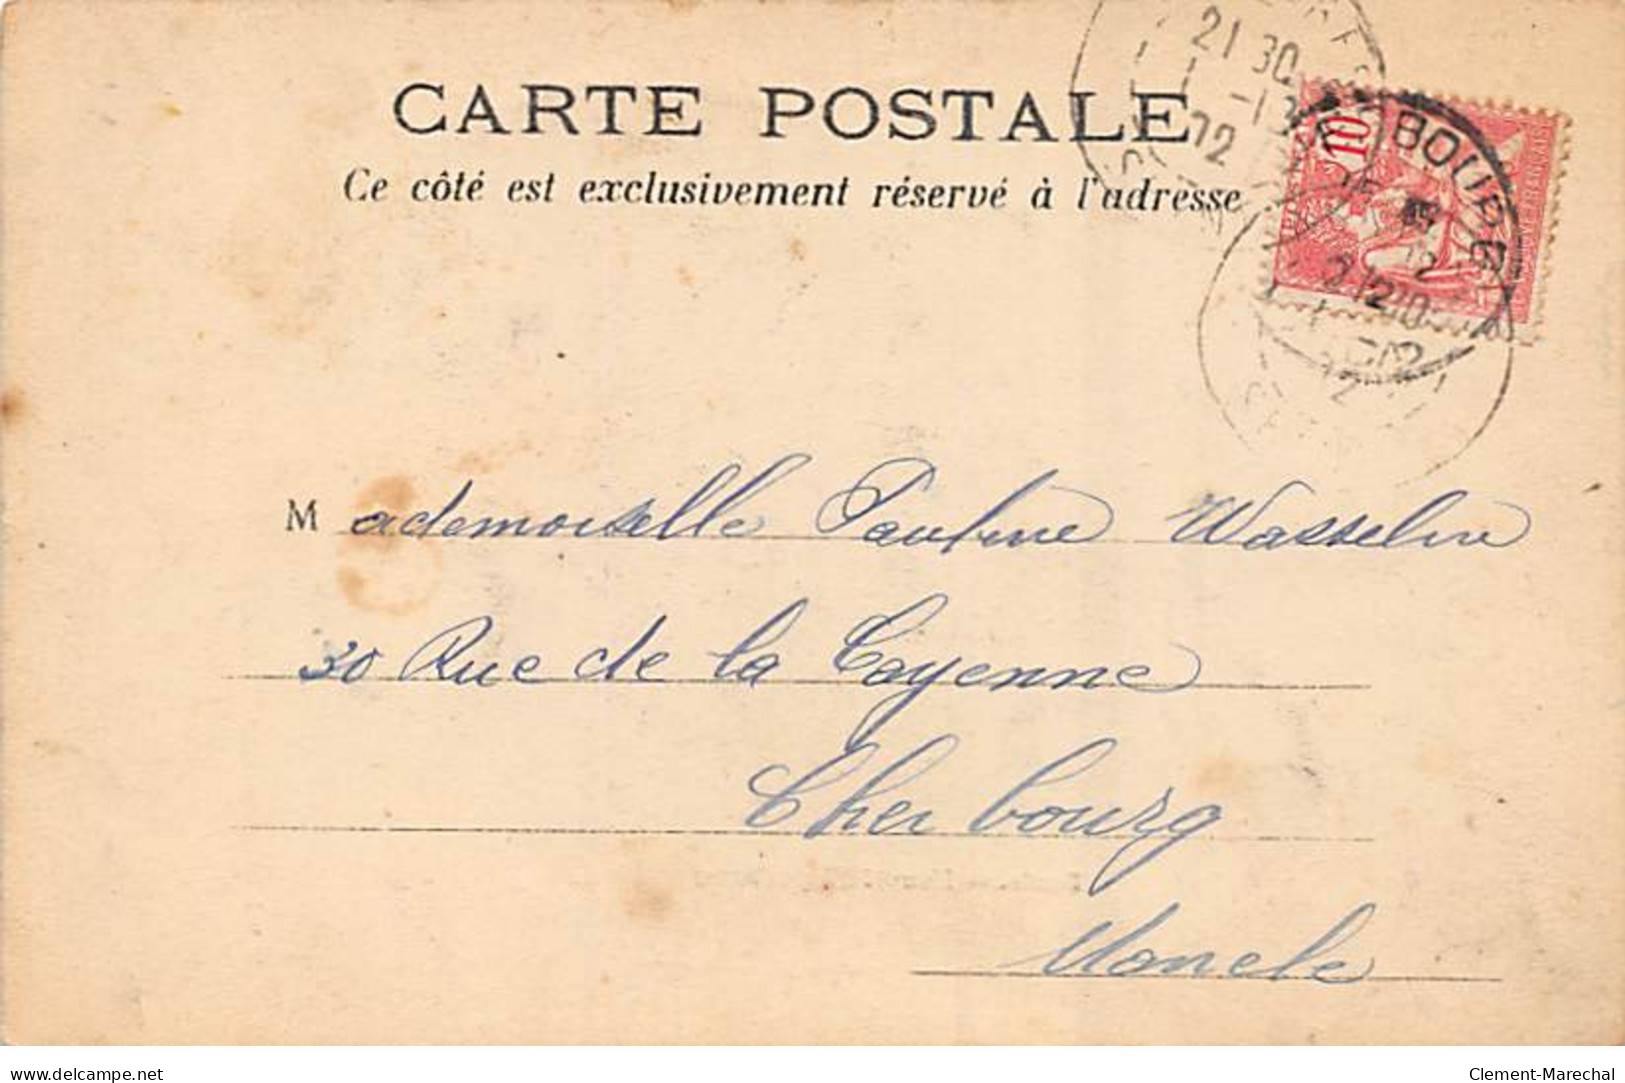 CARTE POSTALE
Ce côté est exclusivement réservé à l'adresse
21 30
-13
12
10
BOURG
12
Mademoiselle Pauline Wasselin
30 Rue de la Cayenne
Cherbourg
Manche
delcampe.net
Clement-Marechal